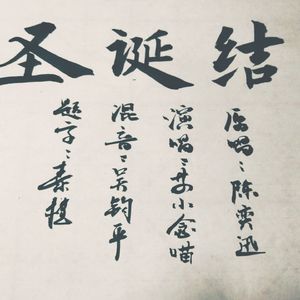 圣诞结
原唱：陈奕迅
演唱：小念喵
混音：吴钧平
题字：秦